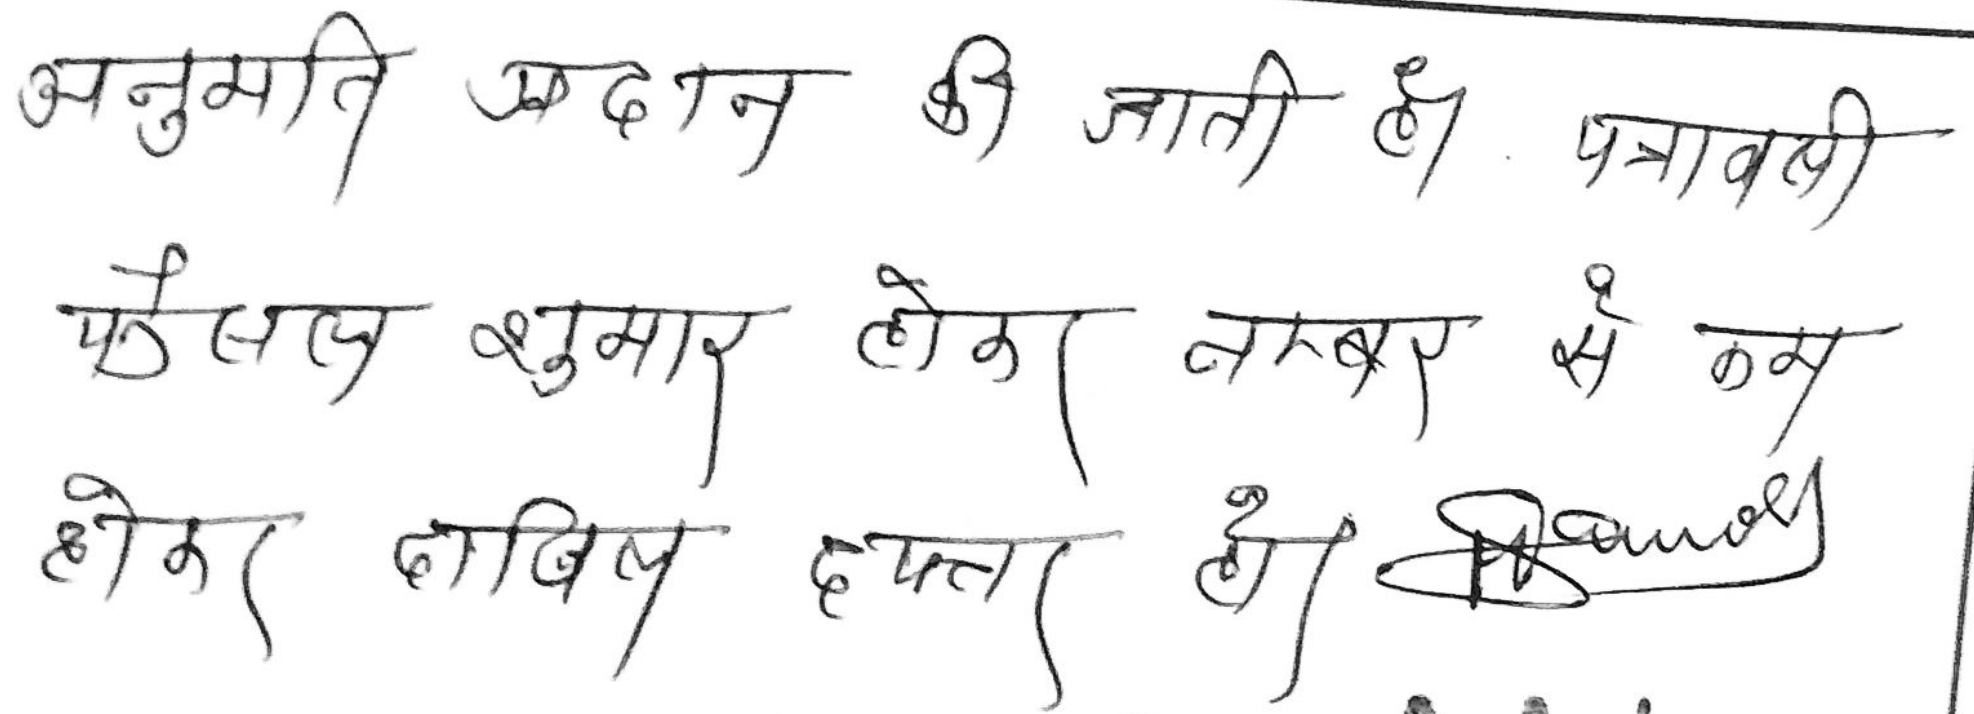 अनुमति प्रदान की जाती है। पत्रावली
फैसल शुमार होकर नम्बर से कम
होकर दाखिल दफ्तर हो।